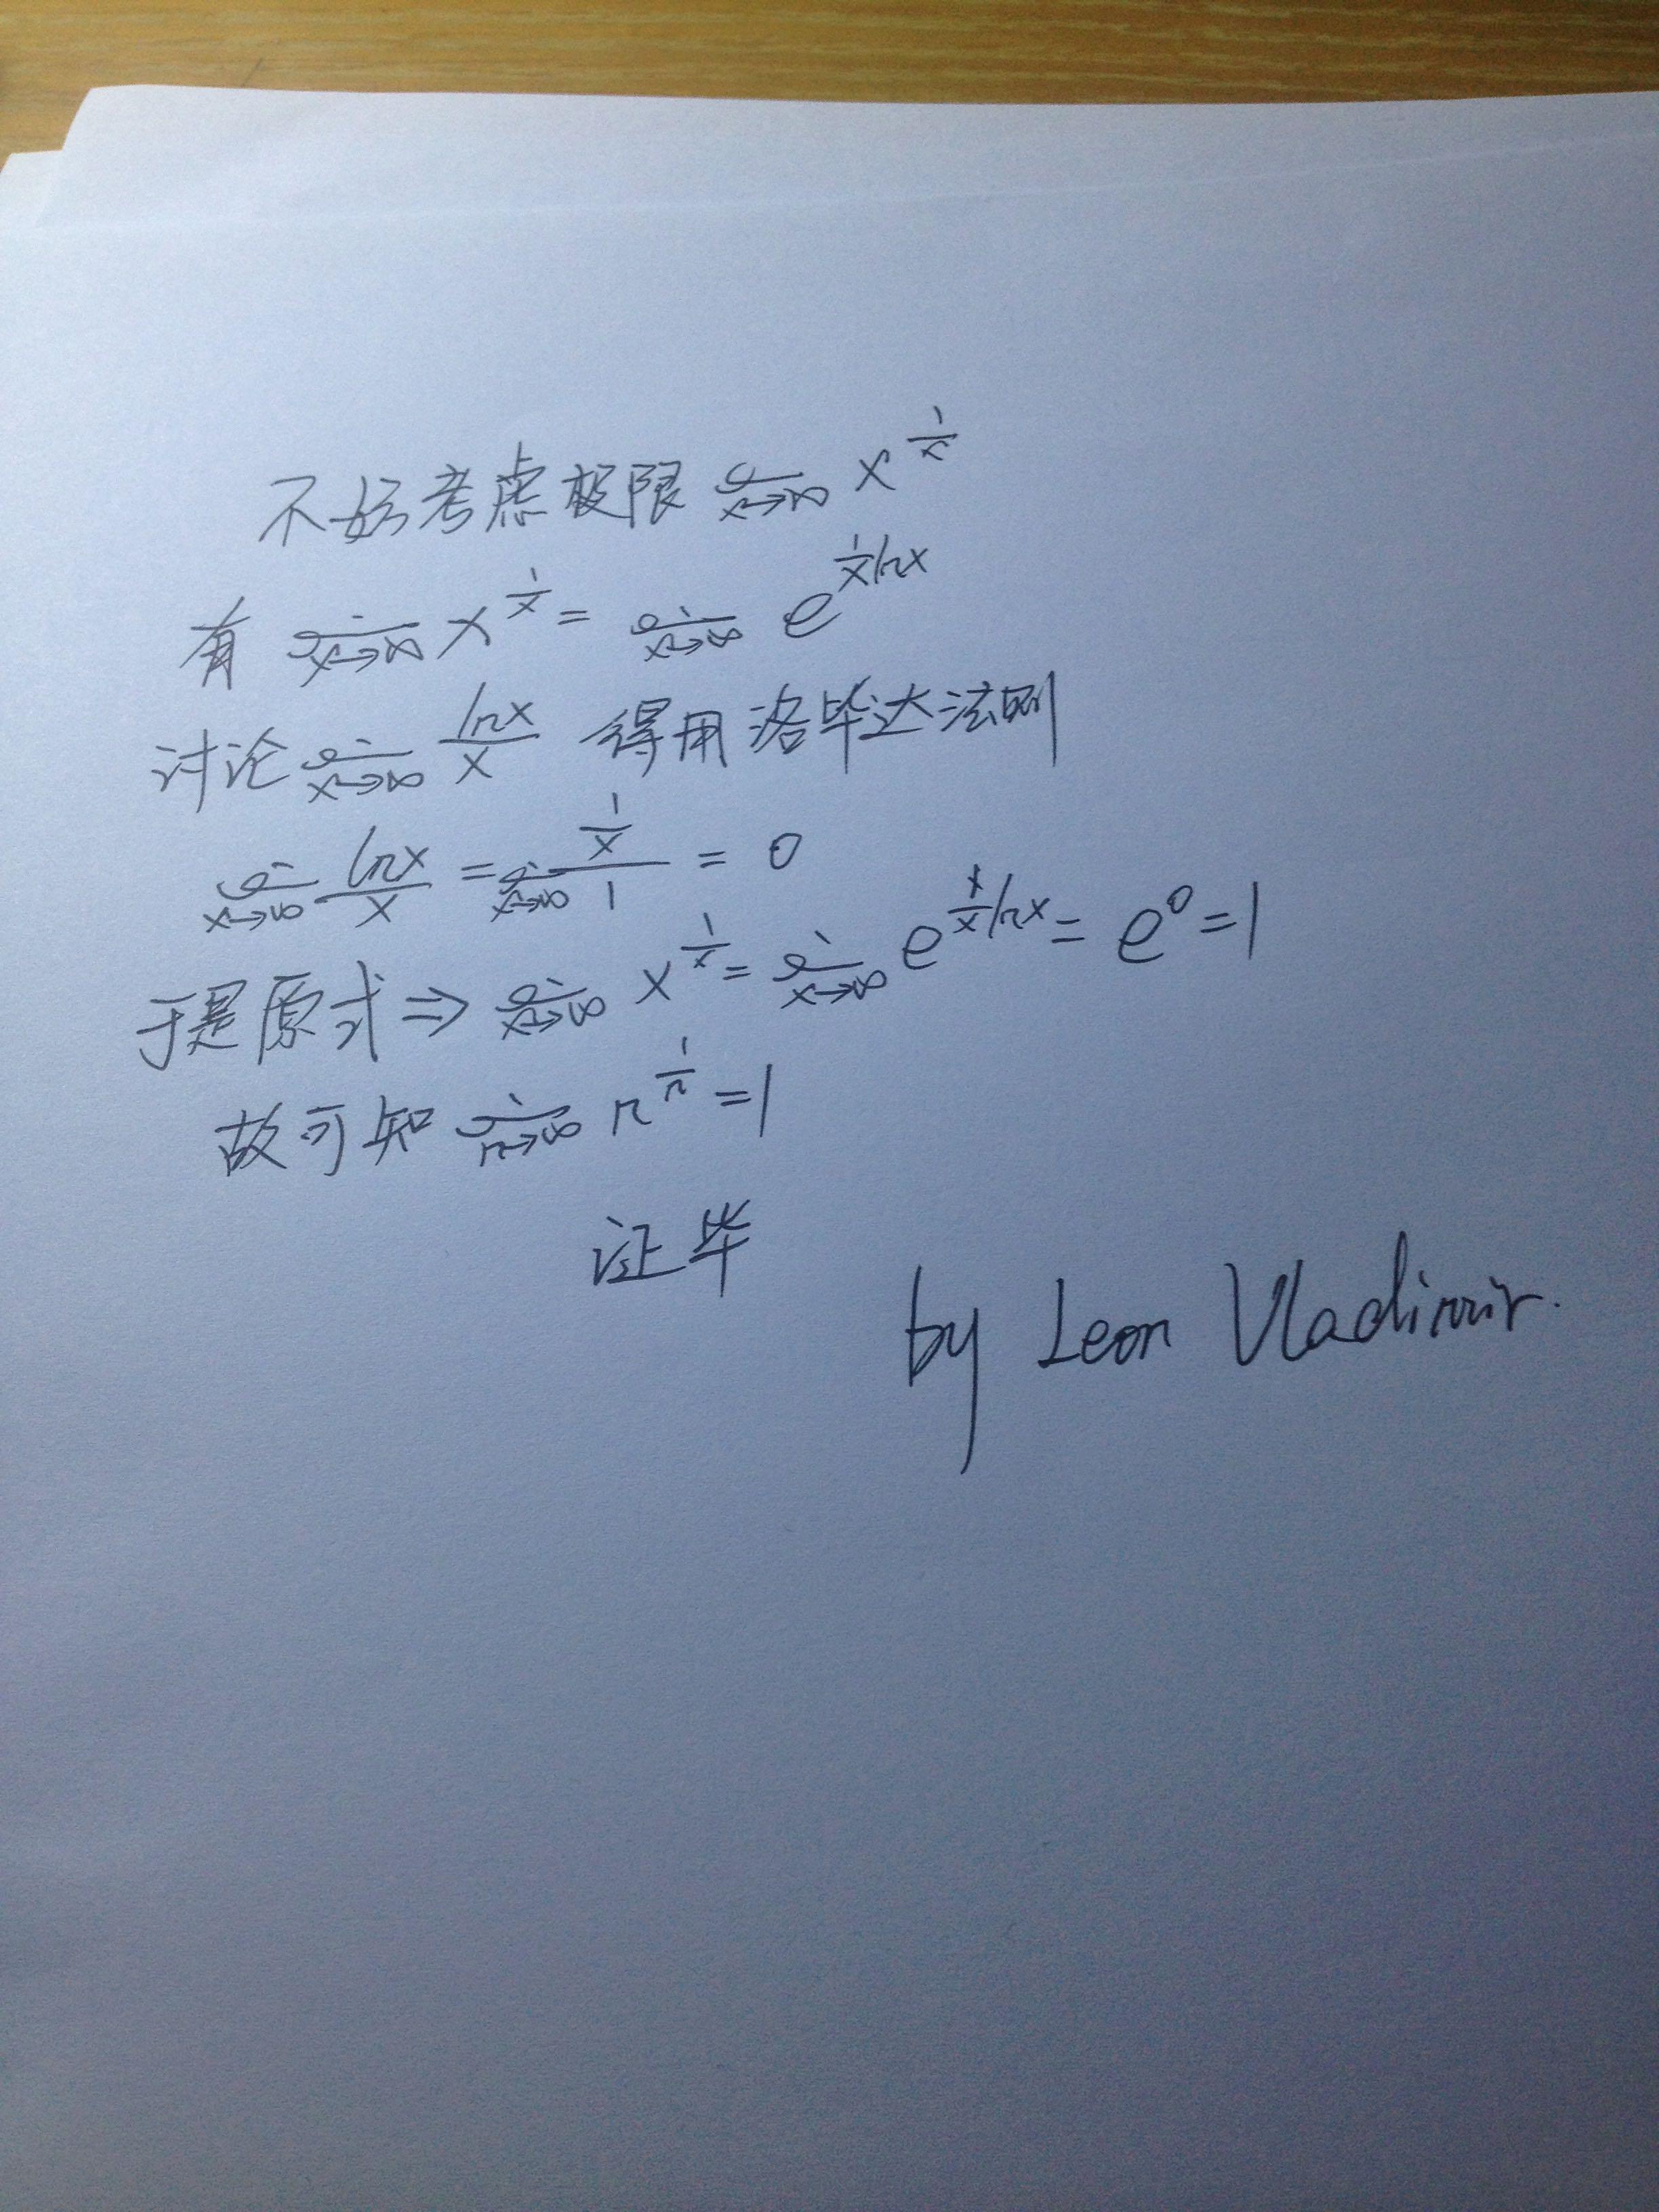 不妨考虑极限 lim x→∞ x^(1/x)
有 lim x→∞ x^(1/x) = lim x→∞ e^(1/x lnx)
讨论 lim x→∞ lnx/x 得用洛毕达法则
lim x→∞ lnx/x = lim x→∞ (1/x)/1 = 0
于是原式 ⇒ lim x→∞ x^(1/x) = lim x→∞ e^(1/x lnx) = e^0 = 1
故可知 lim n→∞ n^(1/n) = 1
证毕
by Leon Vladimir.